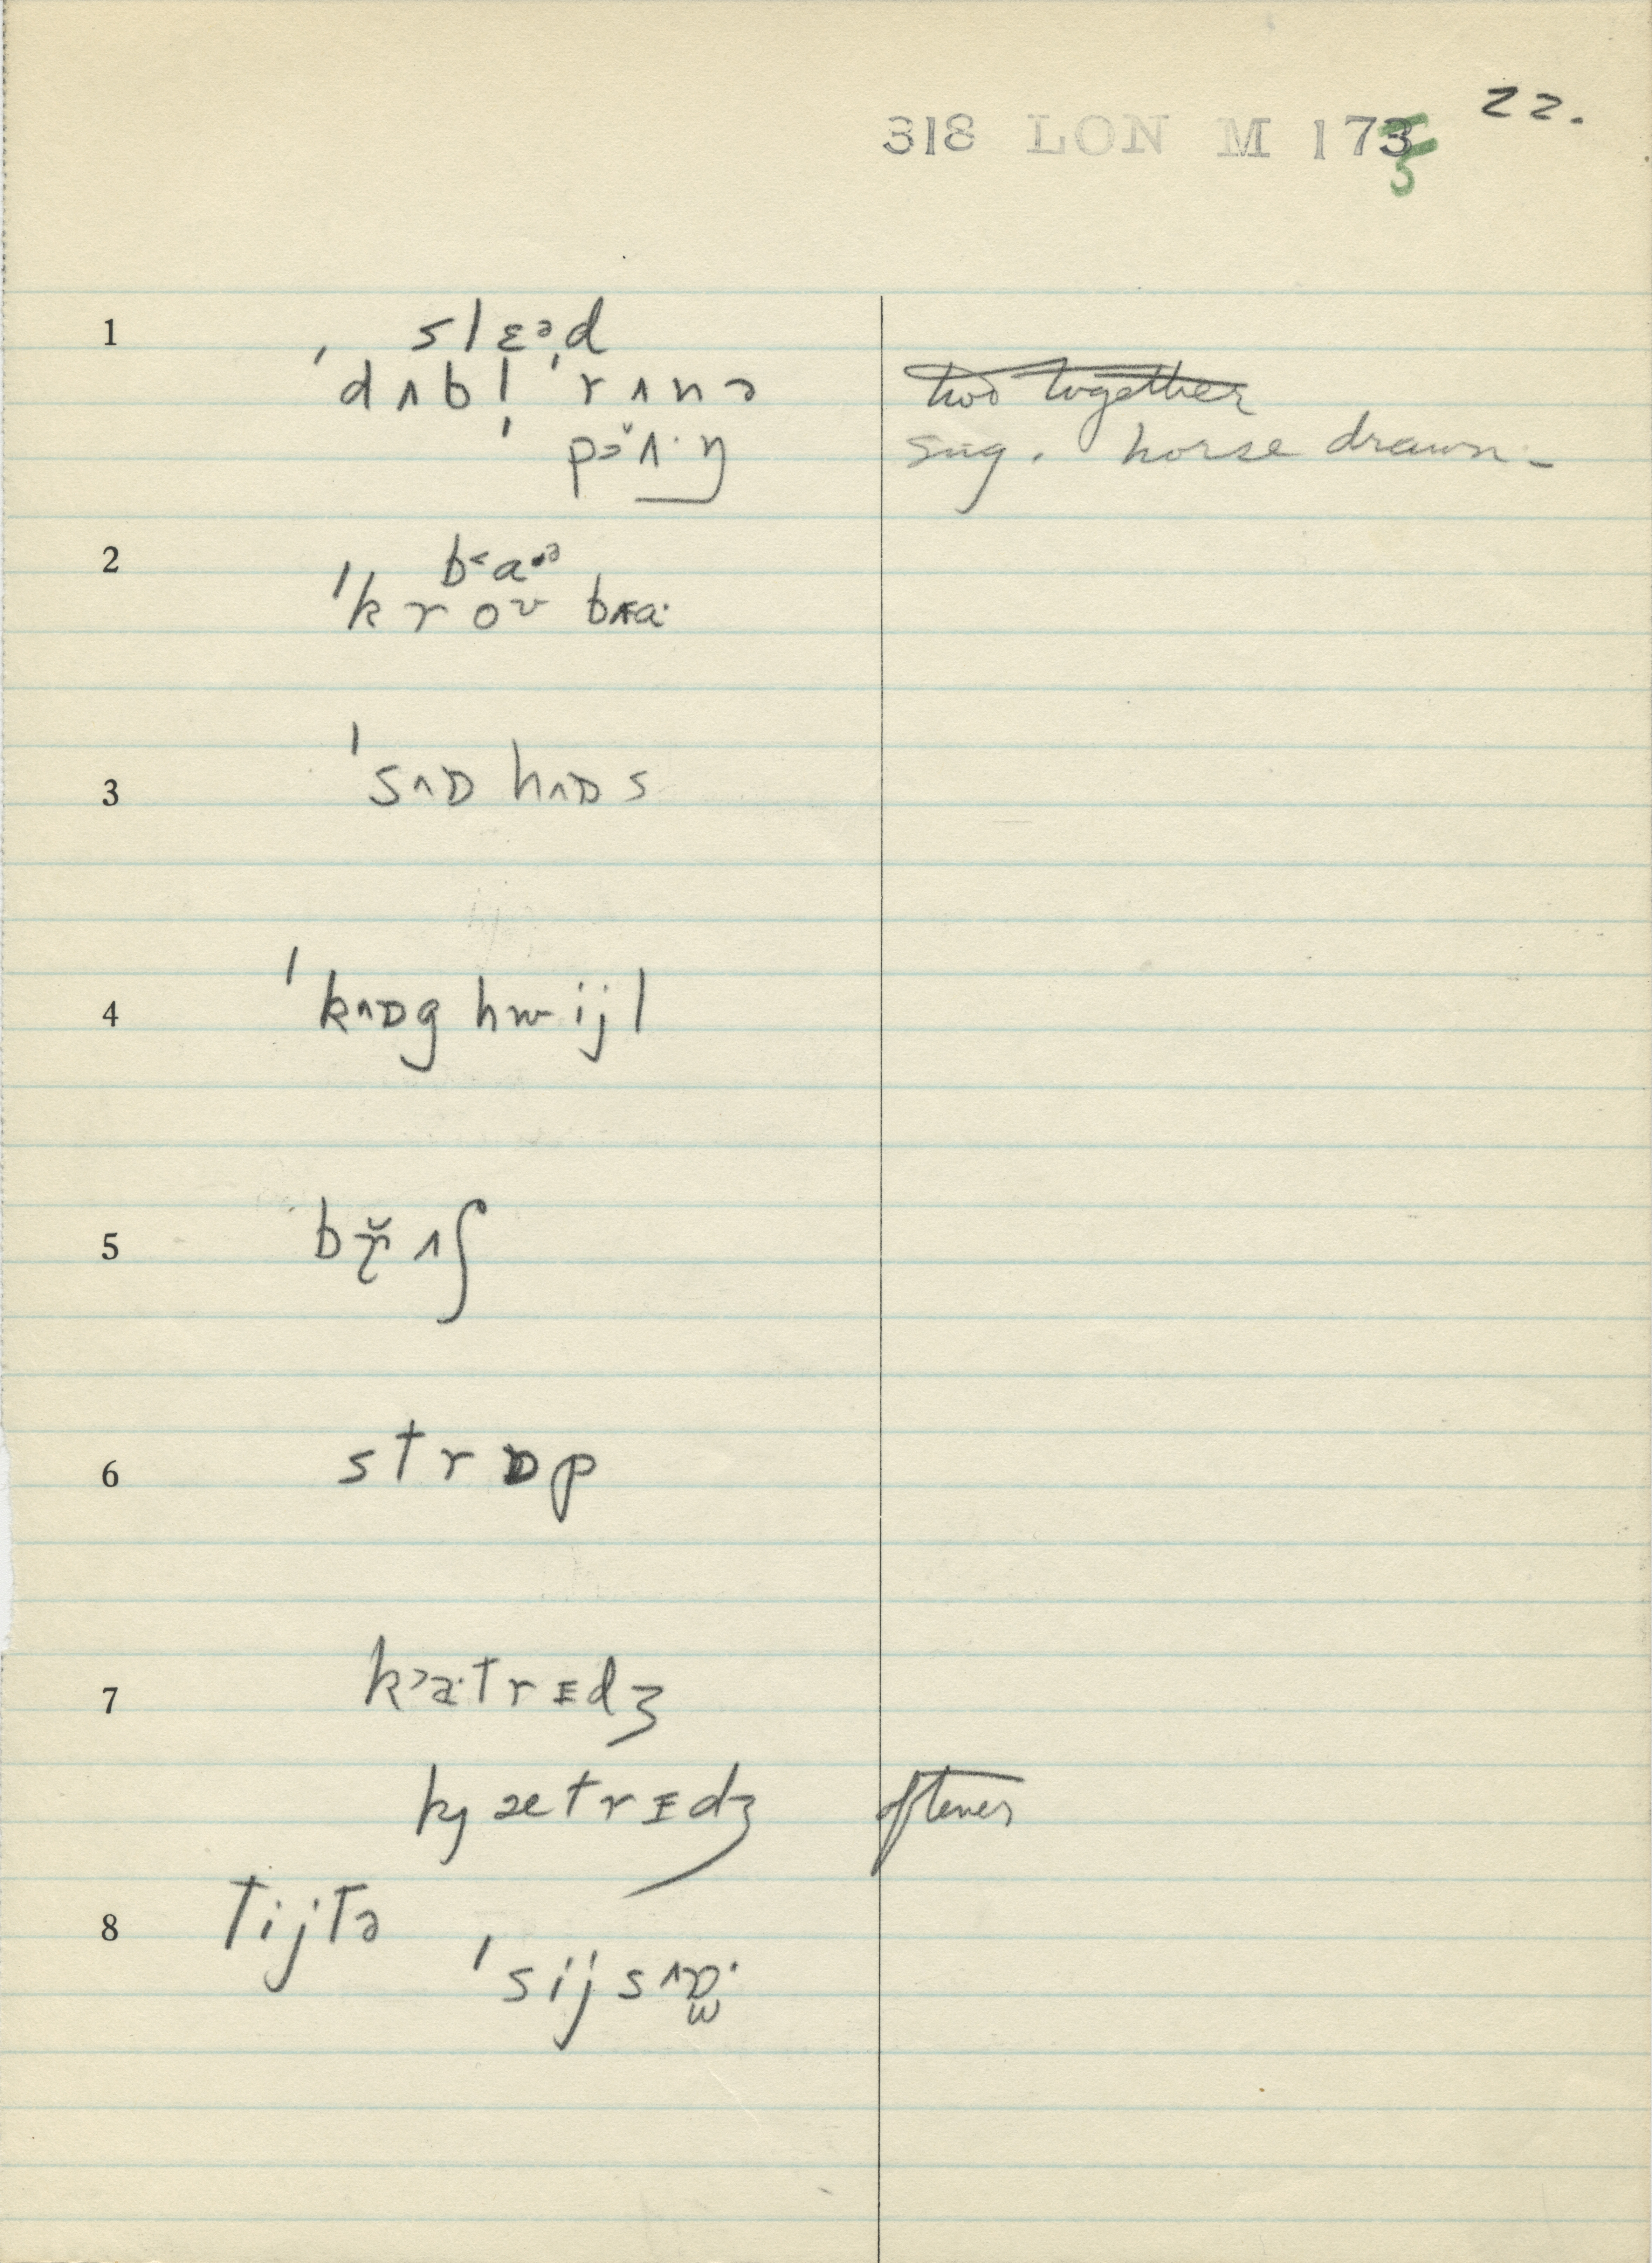 22.
318 LON M 175
1
slɛᵊd
ˈdʌbl̩ ˈrʌnə
two together
pə̆ʌ·ŋ
sug. horse drawn-
2
b˂a·ᵊ
ˈkroʊ bᴁa·
3
ˈsʌɒ hʌɒs
4
ˈkʌɒg hwijl
5
bɽ̆ʌʃ
6
strɒp
7
k˃a·trɪdʒ
kjætrɪdʒ oftener
8
tijtə
ˈsijsʌɒ̫·